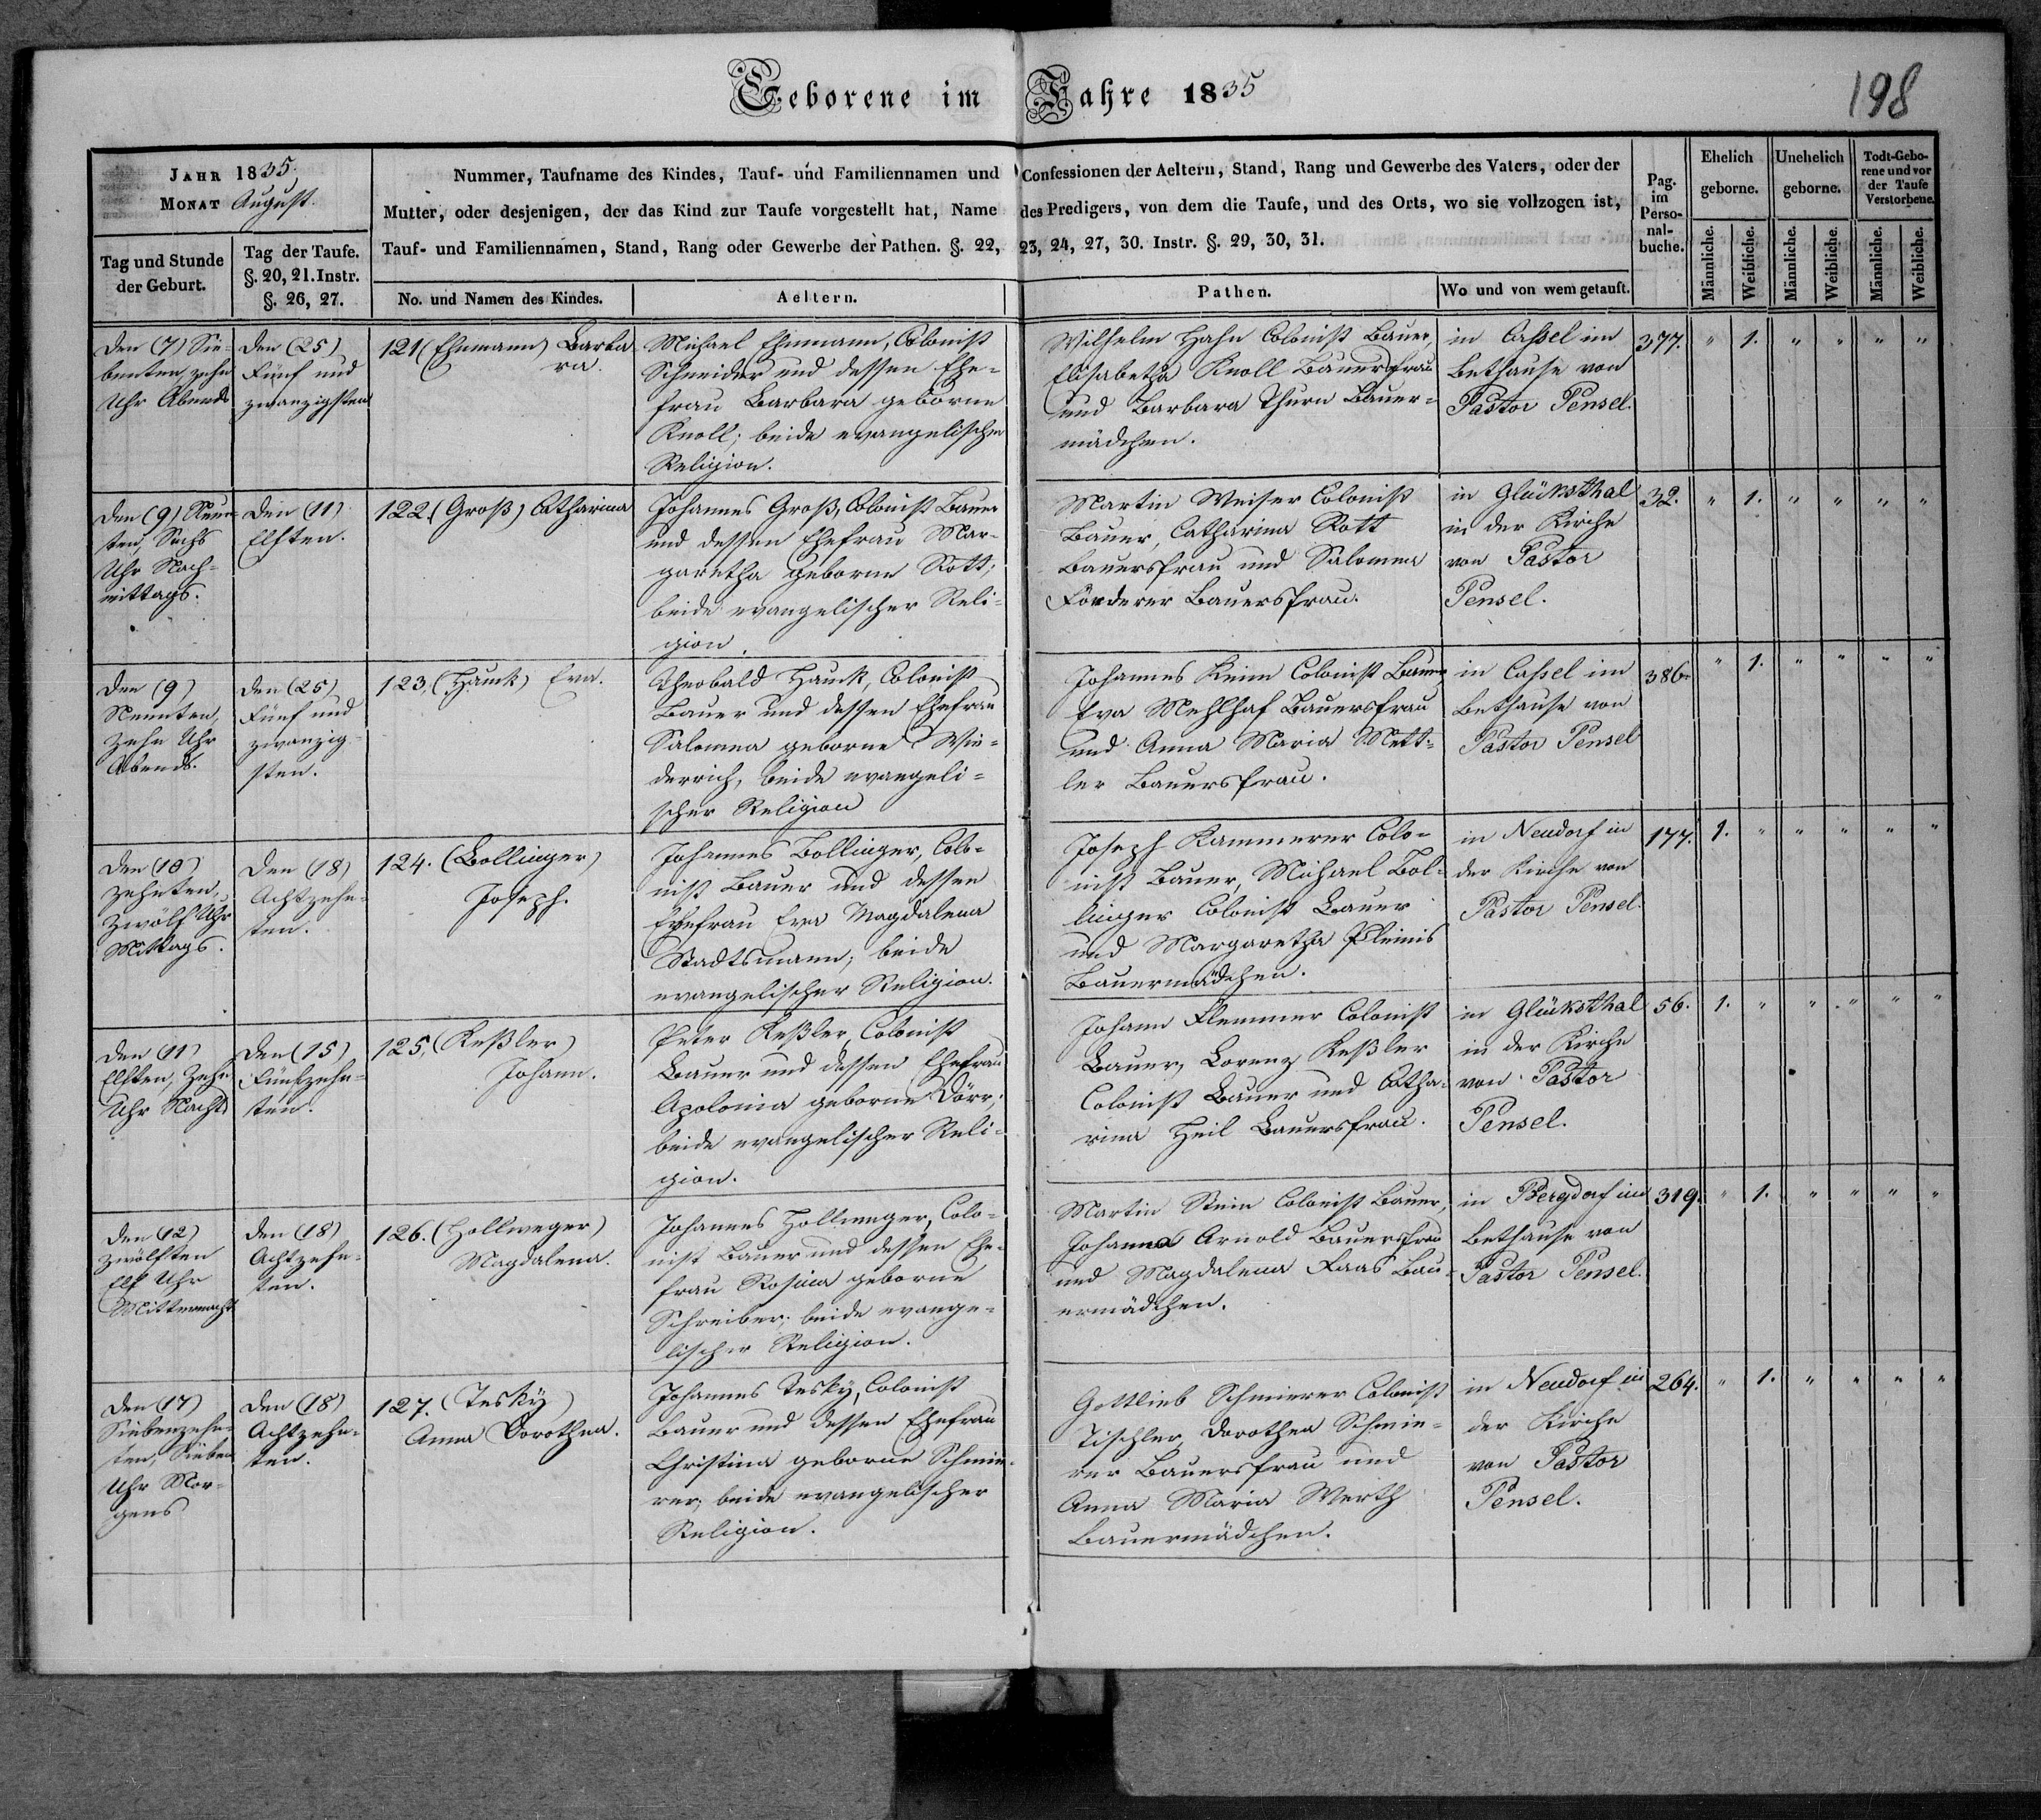 Geborene im Jahre 1835
198
JAHR 1835.
MONAT August.
Tag und Stunde
der Geburt.
Tag der Taufe.
§. 20, 21. Instr.
§. 26, 27.
Nummer, Taufname des Kindes, Tauf- und Familiennamen und Confessionen der Aeltern, Stand, Rang und Gewerbe des Vaters, oder der
Mutter, oder desjenigen, der das Kind zur Taufe vorgestellt hat, Name des Predigers, von dem die Taufe, und des Orts, wo sie vollzogen ist,
Tauf- und Familiennamen, Stand, Rang oder Gewerbe der Pathen. §. 22, 23, 24, 27, 30. Instr. §. 29, 30, 31.
No. und Namen des Kindes.
Aeltern.
Pathen.
Wo und von wem getauft.
Pag.
im
Perso-
nal-
buche.
Ehelich
geborne.
Unehelich
geborne.
Todt-Gebo-
rene und vor
der Taufe
Verstorbene.
Männliche.
Weibliche.
Männliche.
Weibliche.
Männliche.
Weibliche.
Den (7) Sie-
benten, zehn
Uhr Abends
Den (25)
Fünf und
zwanzigsten
121 (Ehemann) Barba
ra.
Michael Ehemann, Colonist
Schneider und dessen Ehe-
frau Barbara geborne
Knoll; beide evangelischer
Religion.
Wilhelm Hahn Colonist Bauer,
Elisabetha Knoll Bauersfrau
und Barbara Thurn Bauer-
mädchen.
in Cassel im
Bethause von
Pastor Pensel.
377. " 1. " " " "
Den (9) Neun-
ten, Sechs
Uhr Nach-
mittags.
Den (11)
Elften.
122. (Groß) Catharina
Johannes Groß, Colonist Bauer
und dessen Ehefrau Mar-
garetha geborne Rott;
beide evangelischer Reli-
gion.
Martin Weiser Colonist
Bauer, Catharina Rott
Bauersfrau und Salomea
Förderer Bauersfrau.
in Glücksthal
in der Kirche
von Pastor
Pensel.
32. " 1. " " " "
Den (9)
Neunten,
Zehn Uhr
Abends.
Den (25)
Fünf und
zwanzig-
sten.
123, (Hauck) Eva.
Theobald Hauck, Colonist
Bauer und dessen Ehefrau
Salomea geborne Wie-
derrich, beide evangeli-
scher Religion
Johannes Keim Colonist Bauer
Eva Mehlhaf Bauersfrau
und Anna Maria Mett-
ler Bauersfrau.
in Cassel im
Bethause von
Pastor Pensel
386. " 1. " " " "
Den (10)
Zehnten,
Zwölf Uhr
Mittags.
Den (18)
Achtzehn-
ten.
124. (Bollinger)
Joseph.
Johannes Bollinger, Colo-
nist Bauer und dessen
Ehefrau Eva Magdalena
Stadtsmann; beide
evangelischer Religion.
Joseph Kammerer Colo-
nist Bauer, Michael Bol-
linger Colonist Bauer
und Margaretha Pleinis
Bauermädchen.
in Neudorf in
der Kirche von
Pastor Pensel.
177. 1. " " " " "
Den (11)
Elften, Zehn
Uhr Nachts
Den (15)
Fünfzehn-
ten.
125, (Keßler)
Johann.
Peter Keßler, Colonist
Bauer und dessen Ehefrau
Apolonia geborne Dörr;
beide evangelischer Reli-
gion.
Johann Flemmer Colonist
Bauer, Lorenz Keßler
Colonist Bauer und Catha-
rina Heil Bauersfrau.
in Glücksthal
in der Kirche
von Pastor
Pensel.
56. 1. " " " " "
Den (12)
zwölften
Elf Uhr
Mitternacht
Den (18)
Achtzehn-
ten.
126. (Hollweger)
Magdalena.
Johannes Hollweger, Colo-
nist Bauer und dessen Ehe-
frau Rosina geborne
Schreiber; beide evange-
lischer Religion.
Martin Stein Colonist Bauer,
Johanna Arnold Bauersfrau
und Magdalena Faas Bau-
ermädchen.
in Bergdorf im
Bethause von
Pastor Pensel.
319. " 1. " " " "
Den (17)
Siebenzehn-
ten, Sieben
Uhr Mor-
gens
Den (18)
Achtzehn-
ten.
127. (Tesky)
Anna Dorothea.
Johannes Tesky, Colonist
Bauer und dessen Ehefrau
Christina geborne Schmie-
rer; beide evangelischer
Religion.
Gottlieb Schmierer Colonist
Tischler, Dorothea Schmie-
rer Bauersfrau und
Anna Maria Werth
Bauermädchen.
in Neudorf in
der Kirche
von Pastor
Pensel.
264. " 1. " " " "